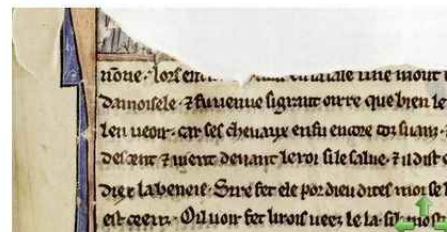 nõne · lors ent en la sale une mout
damoisele · ⁊ fu uenue si grant oirre que bien le
len ueoir · car ses cheuaux en fu encore toz suanz ·
descent ⁊ uient deuant le roi si le salue · ⁊ il dist
diex la beneie · Sire fet ele por dieu dites moi se l
est ceenz · Oil uoir fet li rois ueez le la · si li mostr